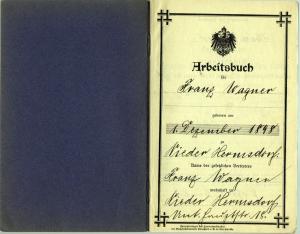 Arbeitsbuch
für
Franz Wagner
geboren am
1. Dezember 1898
Nieder Hermsdorf.
Name des gesetzlichen Vertreters
Franz Wagner
wohnhaft in
Nieder Hermsdorf.